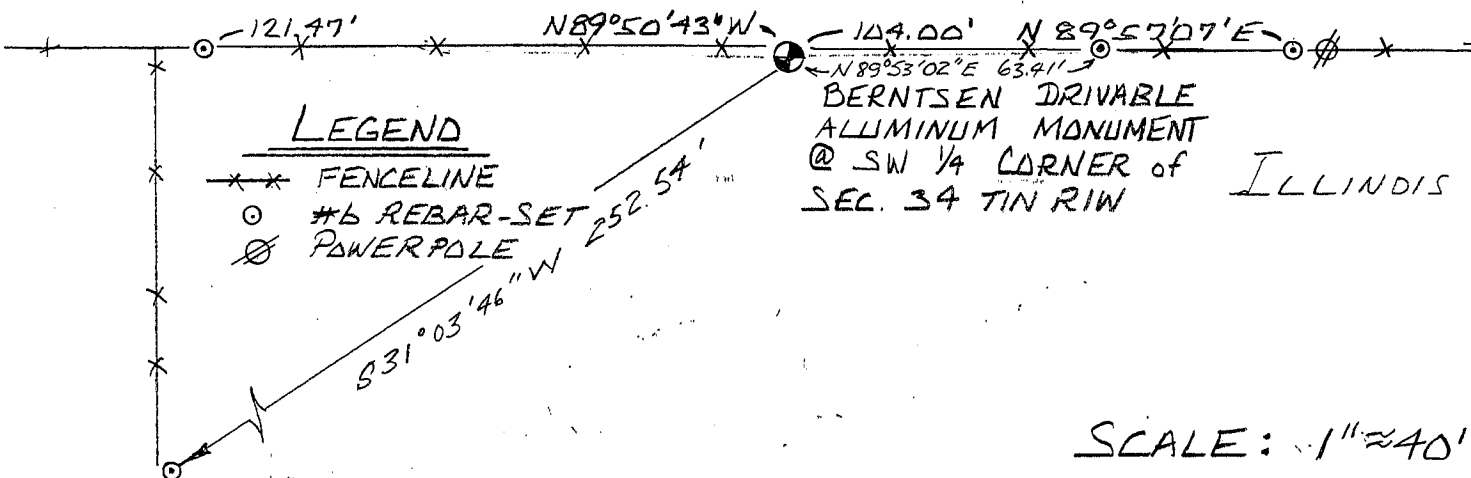 121.47' N89°50'43"W 104.00' N 89°57'07'E
N89°53'02"E 63.41'
BERNTSEN DRIVABLE
ALUMINUM MONUMENT
@ SW 1/4 CORNER of
SEC. 34 T1N R1W
ILLINOIS
LEGEND
FENCELINE
#6 REBAR-SET
POWERPOLE
S31°03'46"W 252.54'
SCALE: 1"≈40'